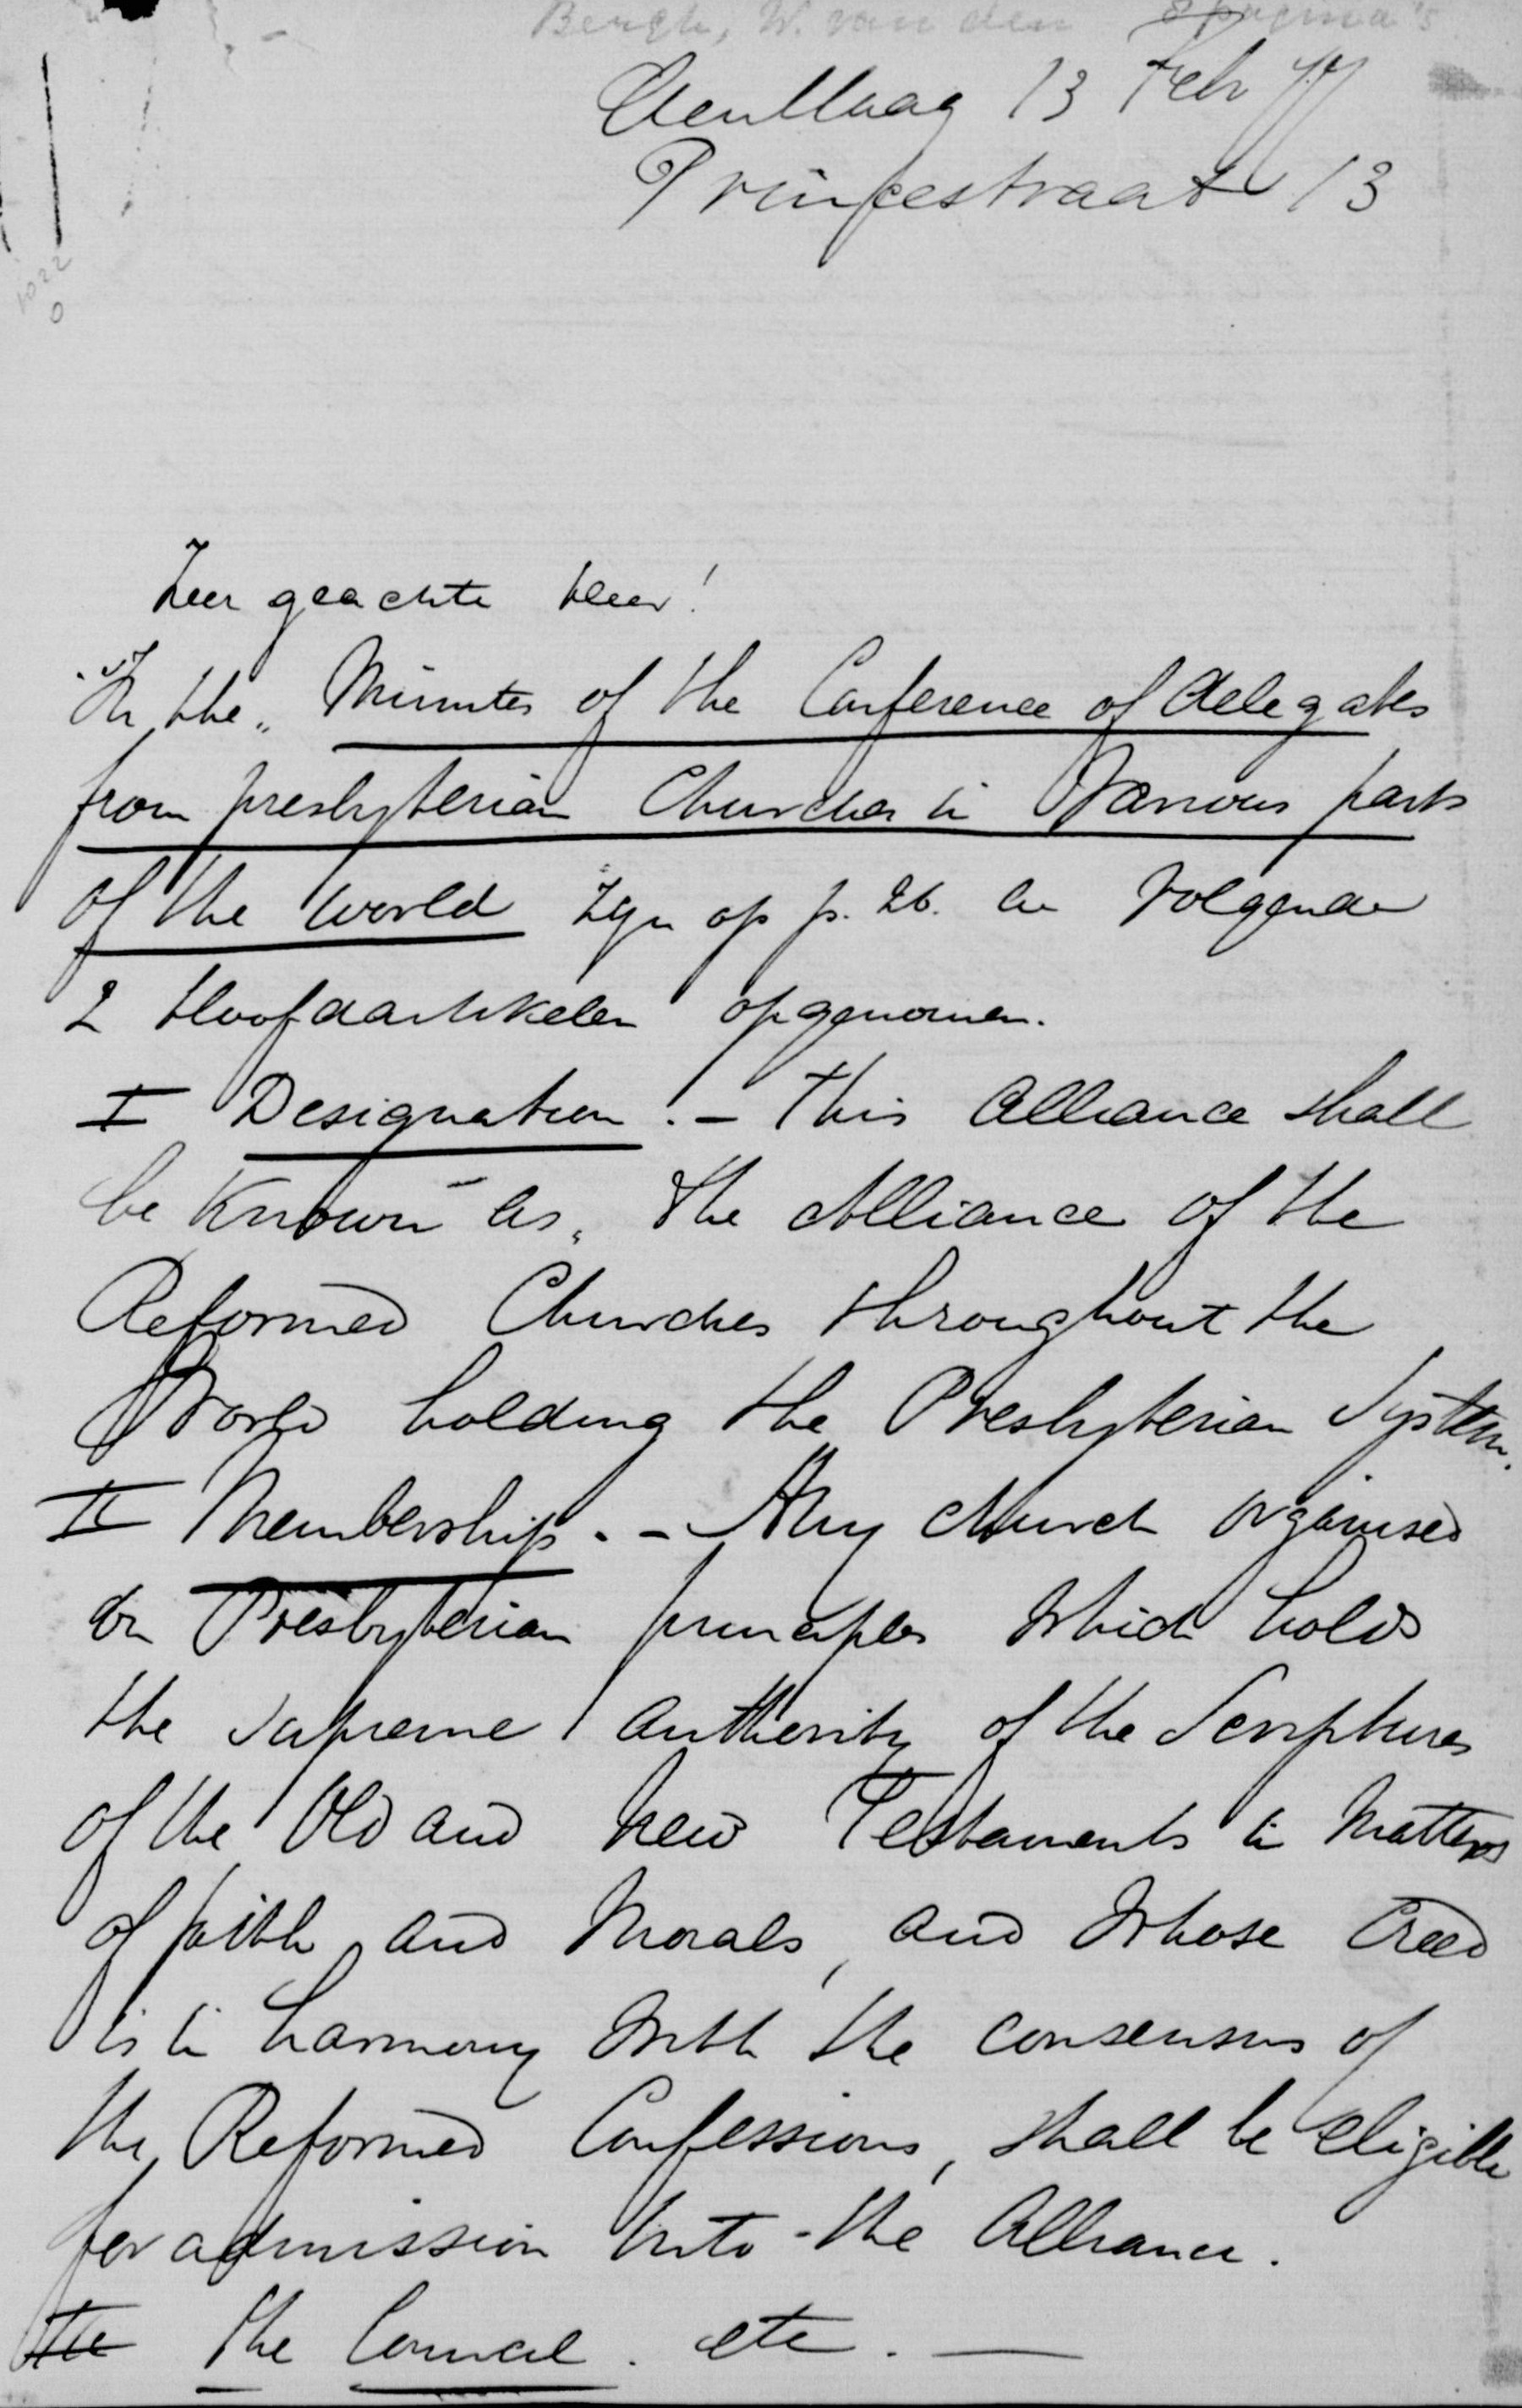 Bergh, W. van den
den Haag 13 Feb 77
Princestraat 13
1022
0
Zeer geachte Heer!
In the „Minutes of the Conference of delegates
from presbyterian Churches in Various parts
of the world zyn op p. 26. de volgende
2 Hoofdartikelen opgenomen.
I Designation. - This Alliance shall
be Known as „The Alliance of the
Reformed Churches throughout the
World holding the Presbyterian System.
II Membership. - Any church organised
on Presbyterian principles which holds
the supreme authority of the Scriptures
of the Old and New Testaments in Matters
of faith and Morals, and Whose Creed
is in harmony with the consensus of
the Reformed Confessions, shall be eligible
for admission into the Alliance.
III The Council. etc. —